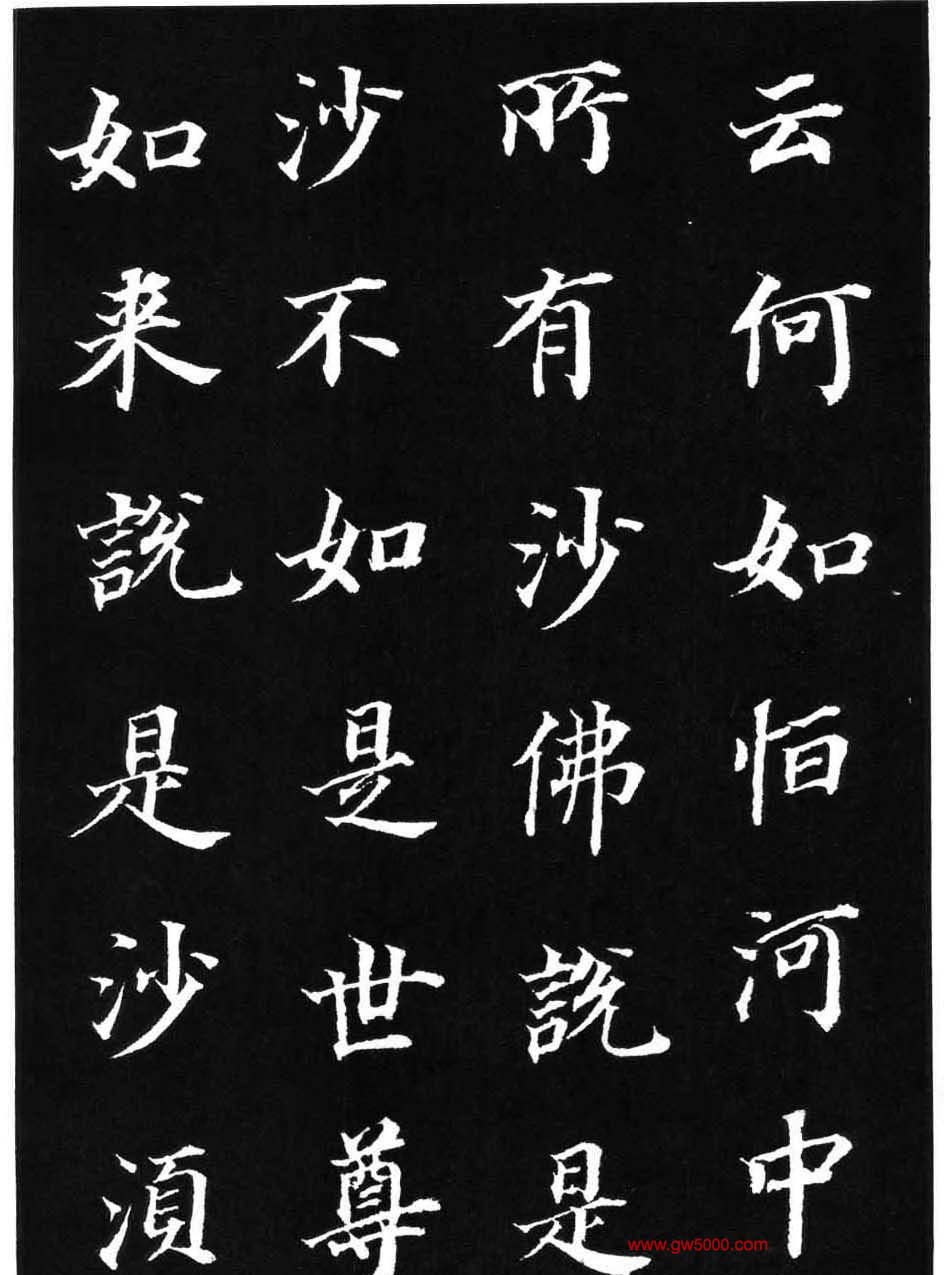 云何如恒河中
所有沙佛說是
沙不如是世尊
如来說是沙湏
www.gw5000.com